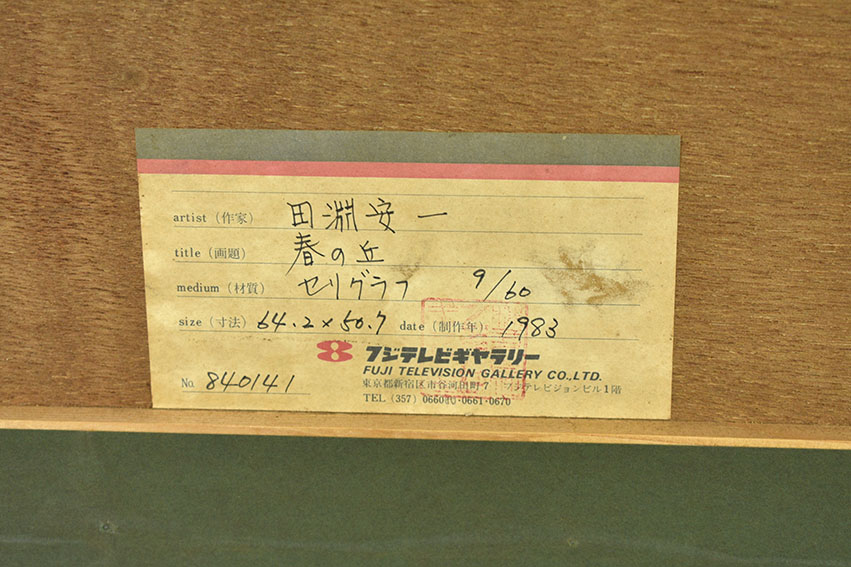 artist (作家) 田淵安一
title (画題) 春の丘
medium (材質) セリグラフ 9/60
size (寸法) 64.2×50.7 date (制作年) 1983
8 フジテレビギャラリー
FUJI TELEVISION GALLERY CO.,LTD.
No. 840141 東京都新宿区市谷河田町7 フジテレビジョンビル1階
TEL (357) 0660・0661・0670